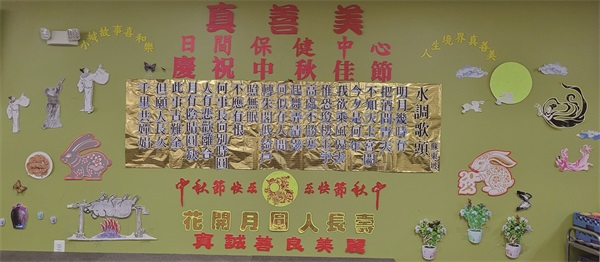 真善美
日間保健中心
慶祝中秋佳節
小城故事喜和樂
人生境界真善美
水調歌頭
明月幾時有
把酒問青天
不知天上宮闕
今夕是何年
我欲乘風歸去
惟恐瓊樓玉宇
高處不勝寒
起舞弄清影
何似在人間
轉朱閣低綺戶
照無眠
不應有恨
何事長向別時圓
人有悲歡離合
月有陰晴圓缺
此事古難全
但願人長久
千里共嬋娟
中秋節快乐
乐快節秋中
花開月圓人長壽
真誠善良美麗